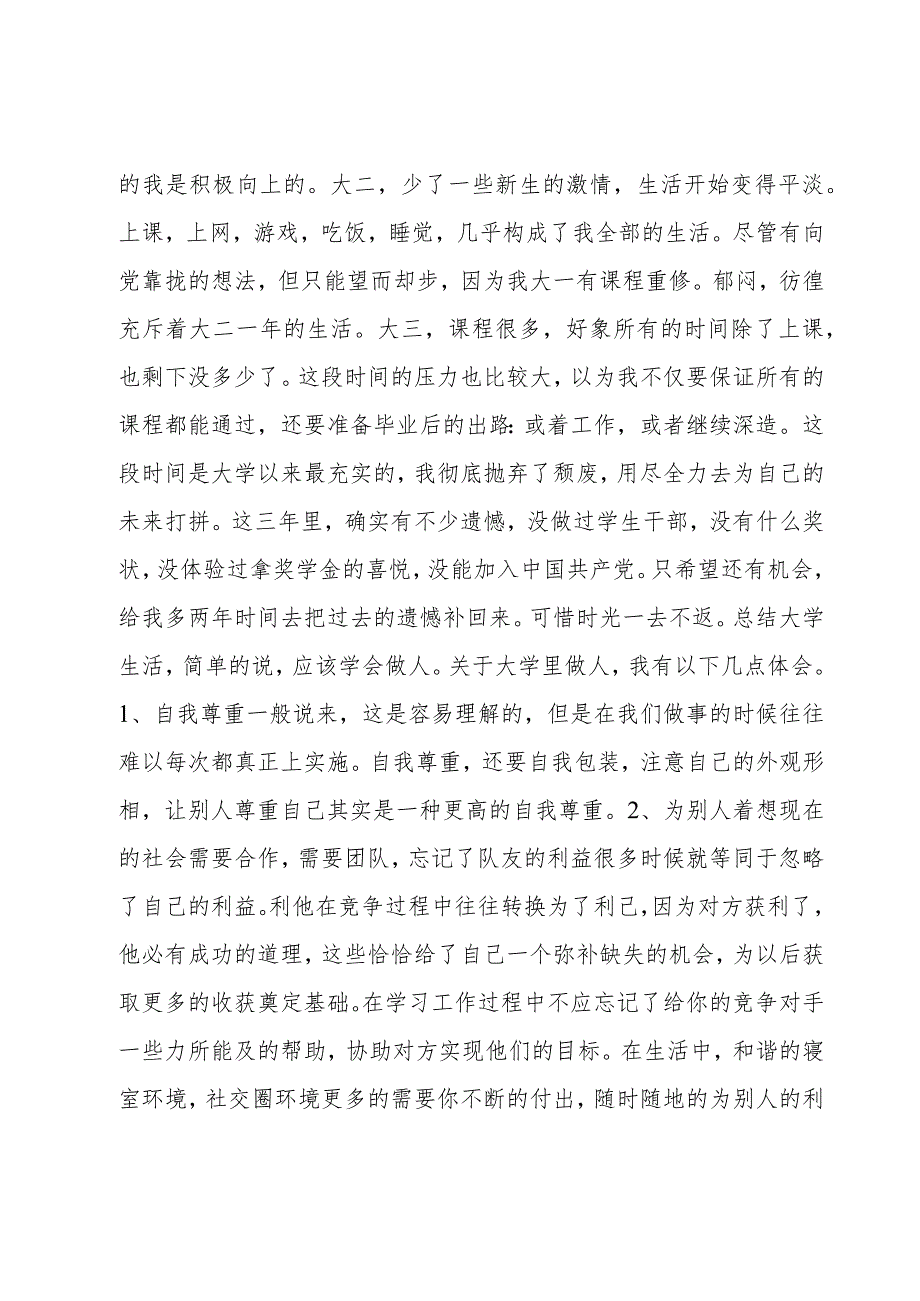 的我是积极向上的。大二，少了一些新生的激情，生活开始变得平淡。
上课，上网，游戏，吃饭，睡觉，几乎构成了我全部的生活。尽管有向
党靠拢的想法，但只能望而却步，因为我大一有课程重修。郁闷，彷徨
充斥着大二一年的生活。大三，课程很多，好象所有的时间除了上课，
也剩下没多少了。这段时间的压力也比较大，以为我不仅要保证所有的
课程都能通过，还要准备毕业后的出路：或着工作，或者继续深造。这
段时间是大学以来最充实的，我彻底抛弃了颓废，用尽全力去为自己的
未来打拼。这三年里，确实有不少遗憾，没做过学生干部，没有什么奖
状，没体验过拿奖学金的喜悦，没能加入中国共产党。只希望还有机会，
给我多两年时间去把过去的遗憾补回来。可惜时光一去不返。总结大学
生活，简单的说，应该学会做人。关于大学里做人，我有以下几点体会。
1、自我尊重一般说来，这是容易理解的，但是在我们做事的时候往往
难以每次都真正上实施。自我尊重，还要自我包装，注意自己的外观形
相，让别人尊重自己其实是一种更高的自我尊重。2、为别人着想现在
的社会需要合作，需要团队，忘记了队友的利益很多时候就等同于忽略
了自己的利益。利他在竞争过程中往往转换为了利己，因为对方获利了，
他必有成功的道理，这些恰恰给了自己一个弥补缺失的机会，为以后获
取更多的收获奠定基础。在学习工作过程中不应忘记了给你的竞争对手
一些力所能及的帮助，协助对方实现他们的目标。在生活中，和谐的寝
室环境，社交圈环境更多的需要你不断的付出，随时随地的为别人的利